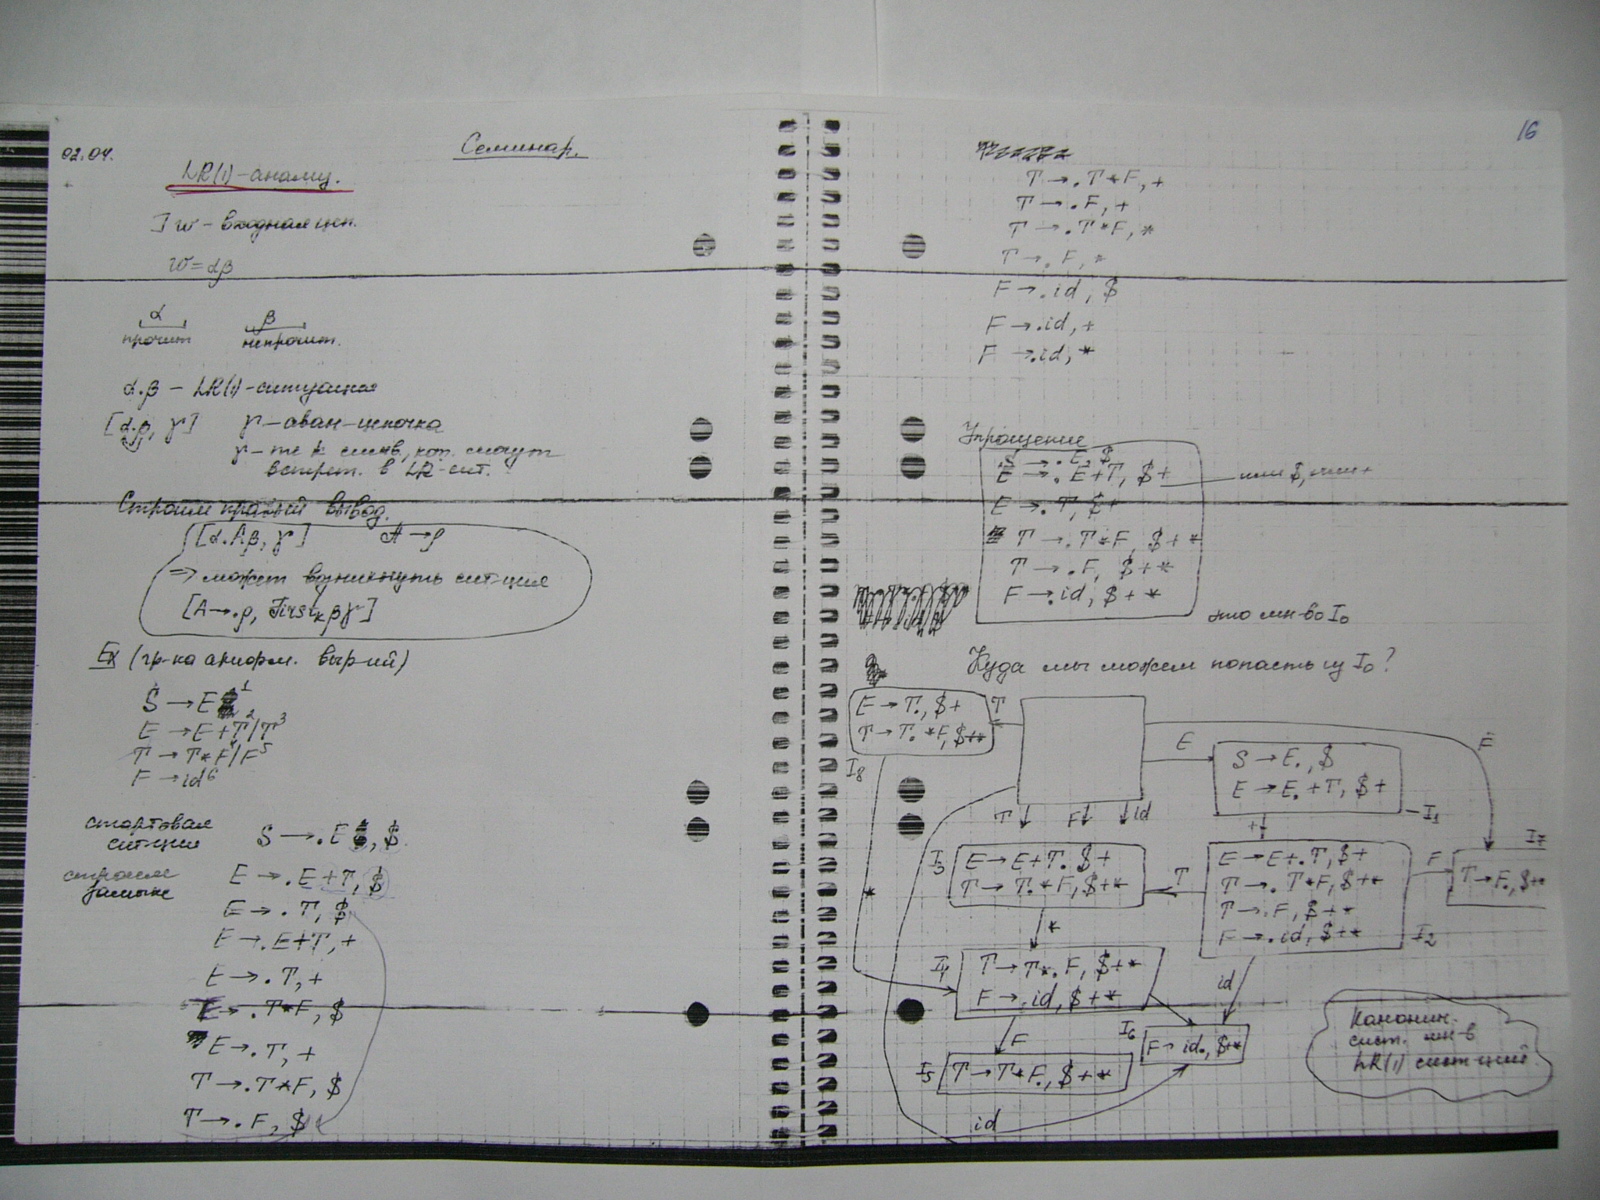 02.04.
Семинар.
LR(1)-анализ.
] w - входная цеп.
w = αβ
α β
прочит непрочит.
α.β - LR(1)-ситуация
[α.β, γ] γ - аван-цепочка
γ - те k симв, кот. смогут
встрет. в LR-сит.
Строим правый вывод.
[α.Aβ, γ] A → ρ
⇒ может возникнуть сит-ция
[A → .ρ, First_k βγ]
Ex (гр-ка арифм. выр-ий)
S → E ¹
E → E+T²/T³
T → T*F⁴/F⁵
F → id⁶
стартовая
сит-ция
S → .E , $
строим
E → .E+T, $
E → .T, $
E → .E+T, +
E → .T, +
E → .T*F, $
E → .T, +
T → .T*F, $
T → .F, $
16
T → .T*F, +
T → .F, +
T → .T*F, *
T → .F, *
F → .id, $
F → .id, +
F → .id, *
Упрощение
S → .E, $
E → .E+T, $+ или $, или +
E → .T, $+
T → .T*F, $+*
T → .F, $+*
F → .id, $+*
это мн-во I₀
Куда мы можем попасть из I₀?
E → T., $+
T → T.*F, $+*
I₈
T
E
E
S → E., $
E → E.+T, $+
I₁
T F id
+
I₃
E → E+T. $+
T → T.*F, $+*
T
E → E+.T, $+
T → .T*F, $+*
T → .F, $+*
F → .id, $+*
I₂
F
I₇
T → F., $+*
*
*
I₄
T → T*.F, $+*
F → .id, $+*
id
F
I₆
F → id., $+*
I₅
T → T*F., $+*
id
Канонич.
сист. мн-в
LR(1) сит-ций